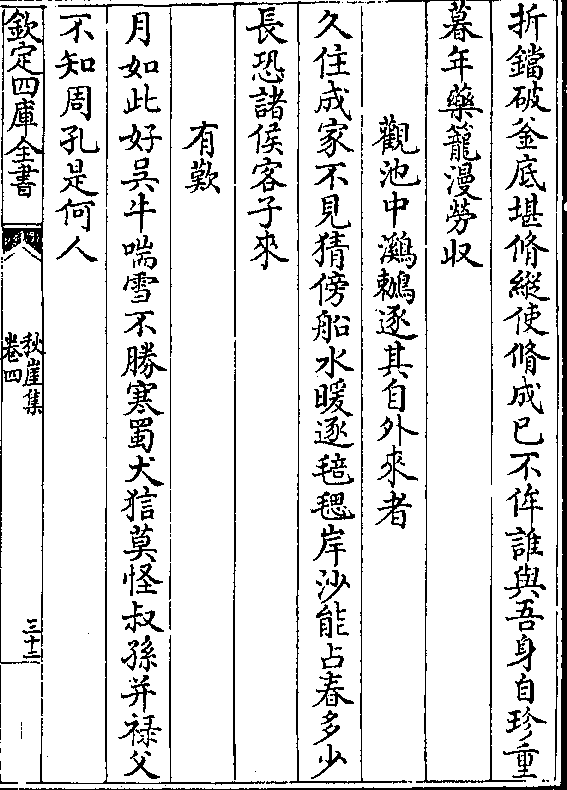 折鐺破釜底堪脩縱使脩成已不侔誰與吾身自珍重
暮年藥籠漫勞収
觀池中鸂鶒逐其自外來者
久住成家不見猜傍船水暖逐毰毸岸沙能占春多少
長恐諸侯客子來
有歎
月如此好吳牛喘雪不勝寒蜀犬狺莫怪叔孫并禄父
不知周孔是何人
欽定四庫全書
秋崖集
卷四
三十二